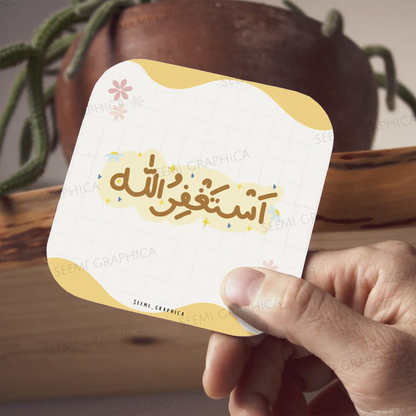 أَسْتَغْفِرُ اللّٰه
SEEMI_GRAPHICA
SEEMI GRAPHICA
SEEMI GRAPHICA
SEEMI GRAPHICA
SEEMI GRAPHICA
SEEMI GRAPHICA
SEEMI GRAPHICA
SEEMI GRAPHICA
SEEMI GRAPHICA